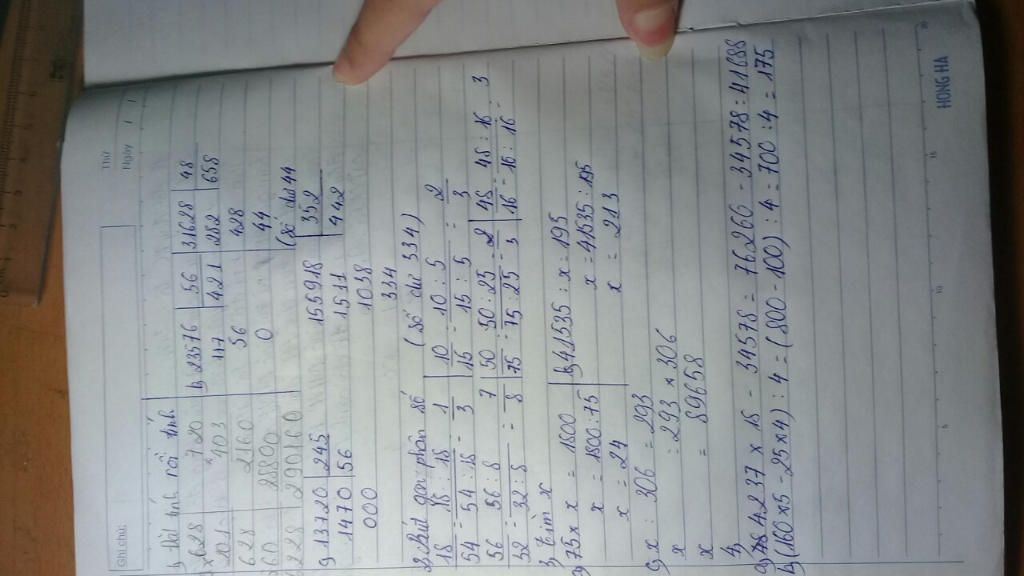 Ghi chú:
Thứ
Ngày
1, Đặt tính rồi tính
x 628
201
628
x 720
103
2160
290160
b, 23576 | 56
117 | 421
56
0
31628 | 48
282 | 658
428
44
(Số dư 44
13720 | 245
1470 | 56
000
155918 | 352
1511 | 442
1038
334
(Số dư 334)
2, rút gọn phân số
18/54 = 18 : 18/54 : 18 = 1/3
10/15 = 10 : 5/15 : 5 = 2/3
56/32 = 56 : 8/32 : 8 = 7
50/75 = 50 : 25/75 : 25 = 2/3
48/16 = 48 : 16/16 : 16 = 3
3, tìm x
a, 75 x x = 1800
x = 1800 : 75
x = 24
b, 41535 : x = 195
x = 41535 : 195
x = 213
c, x : 306 = 293
x = 293 x 306
x = 89658
4,
a, 4237 x 18 - 34578 = 76266 - 34578 = 41688
b, (160 x 5 - 25 x 4) : 4 = (800 - 100) : 4 = 700 : 4 = 175
HONG HA